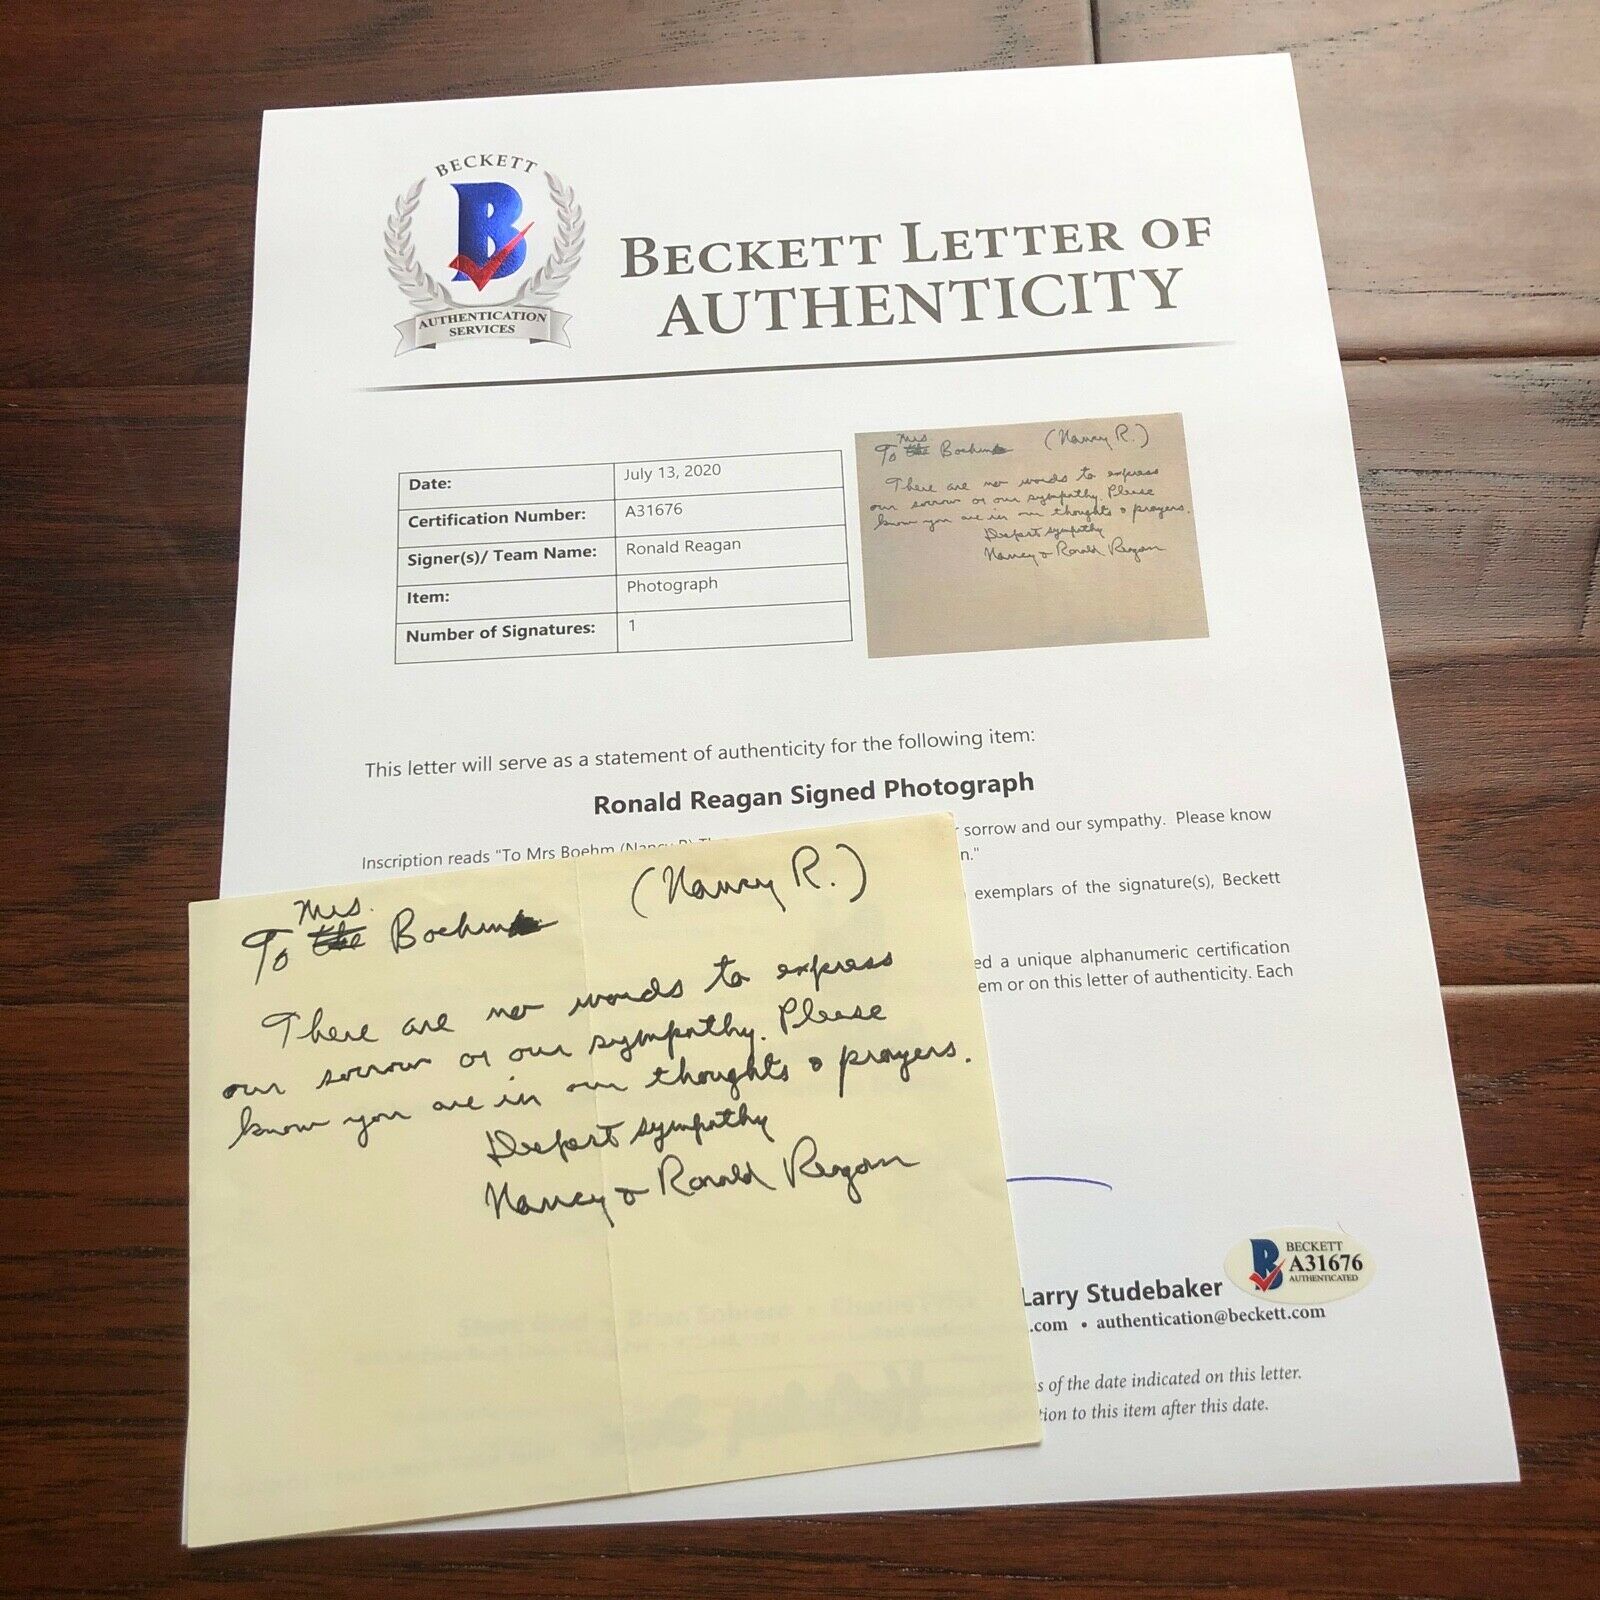 BECKETT
AUTHENTICATION
SERVICES
BECKETT LETTER OF
AUTHENTICITY
Date: July 13, 2020
Certification Number: A31676
Signer(s)/ Team Name: Ronald Reagan
Item: Photograph
Number of Signatures: 1
Mrs.
To the Boehms (Nancy R.)
There are no words to express
our sorrow or our sympathy. Please
know you are in our thoughts & prayers.
Deepest sympathy
Nancy & Ronald Reagan
This letter will serve as a statement of authenticity for the following item:
Ronald Reagan Signed Photograph
Inscription reads "To Mrs Boehm (Nancy R) sorrow and our sympathy. Please know
n."
exemplars of the signature(s), Beckett
ed a unique alphanumeric certification
em or on this letter of authenticity. Each
Mrs.
To the Boehm (Nancy R.)
There are no words to express
our sorrow or our sympathy. Please
know you are in our thoughts & prayers.
Deepest sympathy
Nancy & Ronald Reagan
BECKETT
A31676
AUTHENTICATED
Larry Studebaker
.com • authentication@beckett.com
s of the date indicated on this letter.
tion to this item after this date.